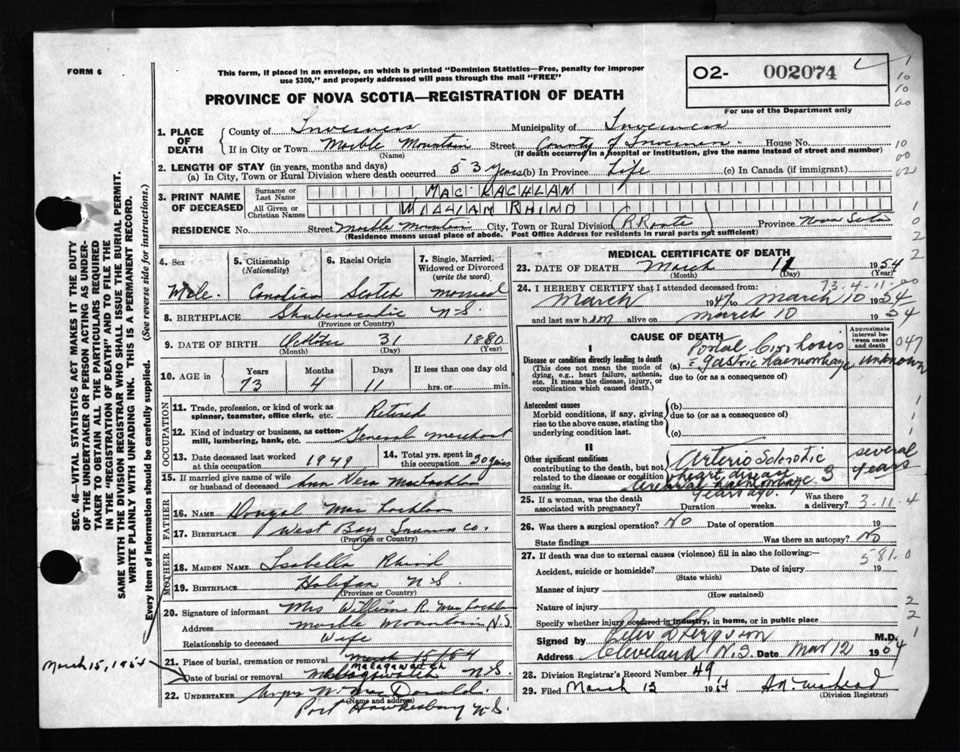 FORM 6
This form, if placed in an envelope, on which is printed "Dominion Statistics—Free, penalty for improper
use $300," and properly addressed will pass through the mail "FREE"
O2- 002074
For use of the Department only
PROVINCE OF NOVA SCOTIA—REGISTRATION OF DEATH
1. PLACE OF DEATH County of Inverness Municipality of Inverness
If in City or Town Marble Mountain (Name) Street County of Inverness House No.
(If death occurred in a hospital or institution, give the name instead of street and number)
2. LENGTH OF STAY (in years, months and days)
(a) In City, Town or Rural Division where death occurred 53 years (b) In Province Life (c) In Canada (if immigrant)
3. PRINT NAME OF DECEASED Surname or Last Name MAC LACHLAN
All Given or Christian Names WILLIAM RHIND
RESIDENCE No. Street Marble Mountain City, Town or Rural Division (R. Route) Province Nova Scotia
(Residence means usual place of abode. Post Office Address for residents in rural parts not sufficient)
4. Sex 5. Citizenship (Nationality) 6. Racial Origin 7. Single, Married, Widowed or Divorced (write the word)
Male Canadian Scotch Married
8. BIRTHPLACE Shubenacadie N-S.
(Province or Country)
9. DATE OF BIRTH October 31 1880
(Month) (Day) (Year)
10. AGE in Years Months Days If less than one day old
73 4 11 hrs. or min.
11. Trade, profession, or kind of work as spinner, teamster, office clerk, etc. Retired
12. Kind of industry or business, as cotton-mill, lumbering, bank, etc. General merchant
13. Date deceased last worked at this occupation 1949 14. Total yrs. spent in this occupation 30 years
15. If married give name of wife or husband of deceased Ann Vera MacLachlan
FATHER
16. Name Dougal Mac Lachlan
17. BIRTHPLACE West Bay Inverness Co.
(Province or Country)
MOTHER
18. MAIDEN NAME Isabella Rhind
19. BIRTHPLACE Halifax N S.
(Province or Country)
20. Signature of informant Mrs William R. MacLachlan
Address Marble Mountain N.S.
Relationship to deceased Wife
21. Place of burial, cremation or removal
Malagawatch
Date of burial or removal Malagawatch N S.
March 15, 1954
22. UNDERTAKER Angus W. MacDonald
(Name and address)
Port Hawkesbury N.S.
MEDICAL CERTIFICATE OF DEATH
23. DATE OF DEATH March 11 1954
(Month) (Day) (Year)
73-4-11-00
24. I HEREBY CERTIFY that I attended deceased from:
March 1947 to March 10 1954
and last saw him alive on March 10 1954
CAUSE OF DEATH
Approximate interval between onset and death
I
Disease or condition directly leading to death
(This does not mean the mode of dying, e.g., heart failure, asthenia, etc. It means the disease, injury, or complication which caused death.)
(a) Portal Cirrhosis & gastric haemorrhage unknown
due to (or as a consequence of)
Antecedent causes
Morbid conditions, if any, giving rise to the above cause, stating the underlying condition last.
(b)
due to (or as a consequence of)
(c)
II
Other significant conditions
contributing to the death, but not related to the disease or condition causing it.
Arterio Sclerotic heart disease several years
haemorrhage 3 years ago.
25. If a woman, was the death associated with pregnancy? Duration weeks. Was there a delivery? 3-11-4
26. Was there a surgical operation? NO Date of operation 19
State findings Was there an autopsy? No
27. If death was due to external causes (violence) fill in also the following:—
581.0
Accident, suicide or homicide? Date of injury 19
(State which)
Manner of injury
(How sustained)
Nature of injury
Specify whether injury occurred in industry, in home, or in public place
Signed by Ferguson M.D.
Address Cleveland N.S. Date Mar 12 1954
28. Division Registrar's Record Number 49
29. Filed March 12 1954
(Division Registrar)
SEC. 46—VITAL STATISTICS ACT MAKES IT THE DUTY
OF THE UNDERTAKER OR PERSON ACTING AS UNDER-
TAKER TO OBTAIN ALL THE PARTICULARS REQUIRED
IN THE "REGISTRATION OF DEATH" AND TO FILE THE
SAME WITH THE DIVISION REGISTRAR WHO SHALL ISSUE THE BURIAL PERMIT.
WRITE PLAINLY WITH UNFADING INK. THIS IS A PERMANENT RECORD.
Every item of information should be carefully supplied. (See reverse side for instructions.)